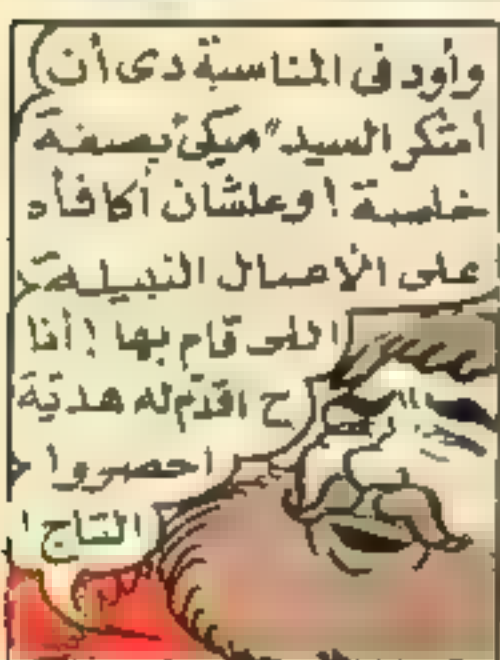 وأود فى المناسبة دى أن
أشكر السيد "ميكى" بصفة
خاصة ! وعلشان أكافأه
على الأعمال النبيلة
اللى قام بها ! أنا
ح اقدّم له هديّة
احضروا
التاج !